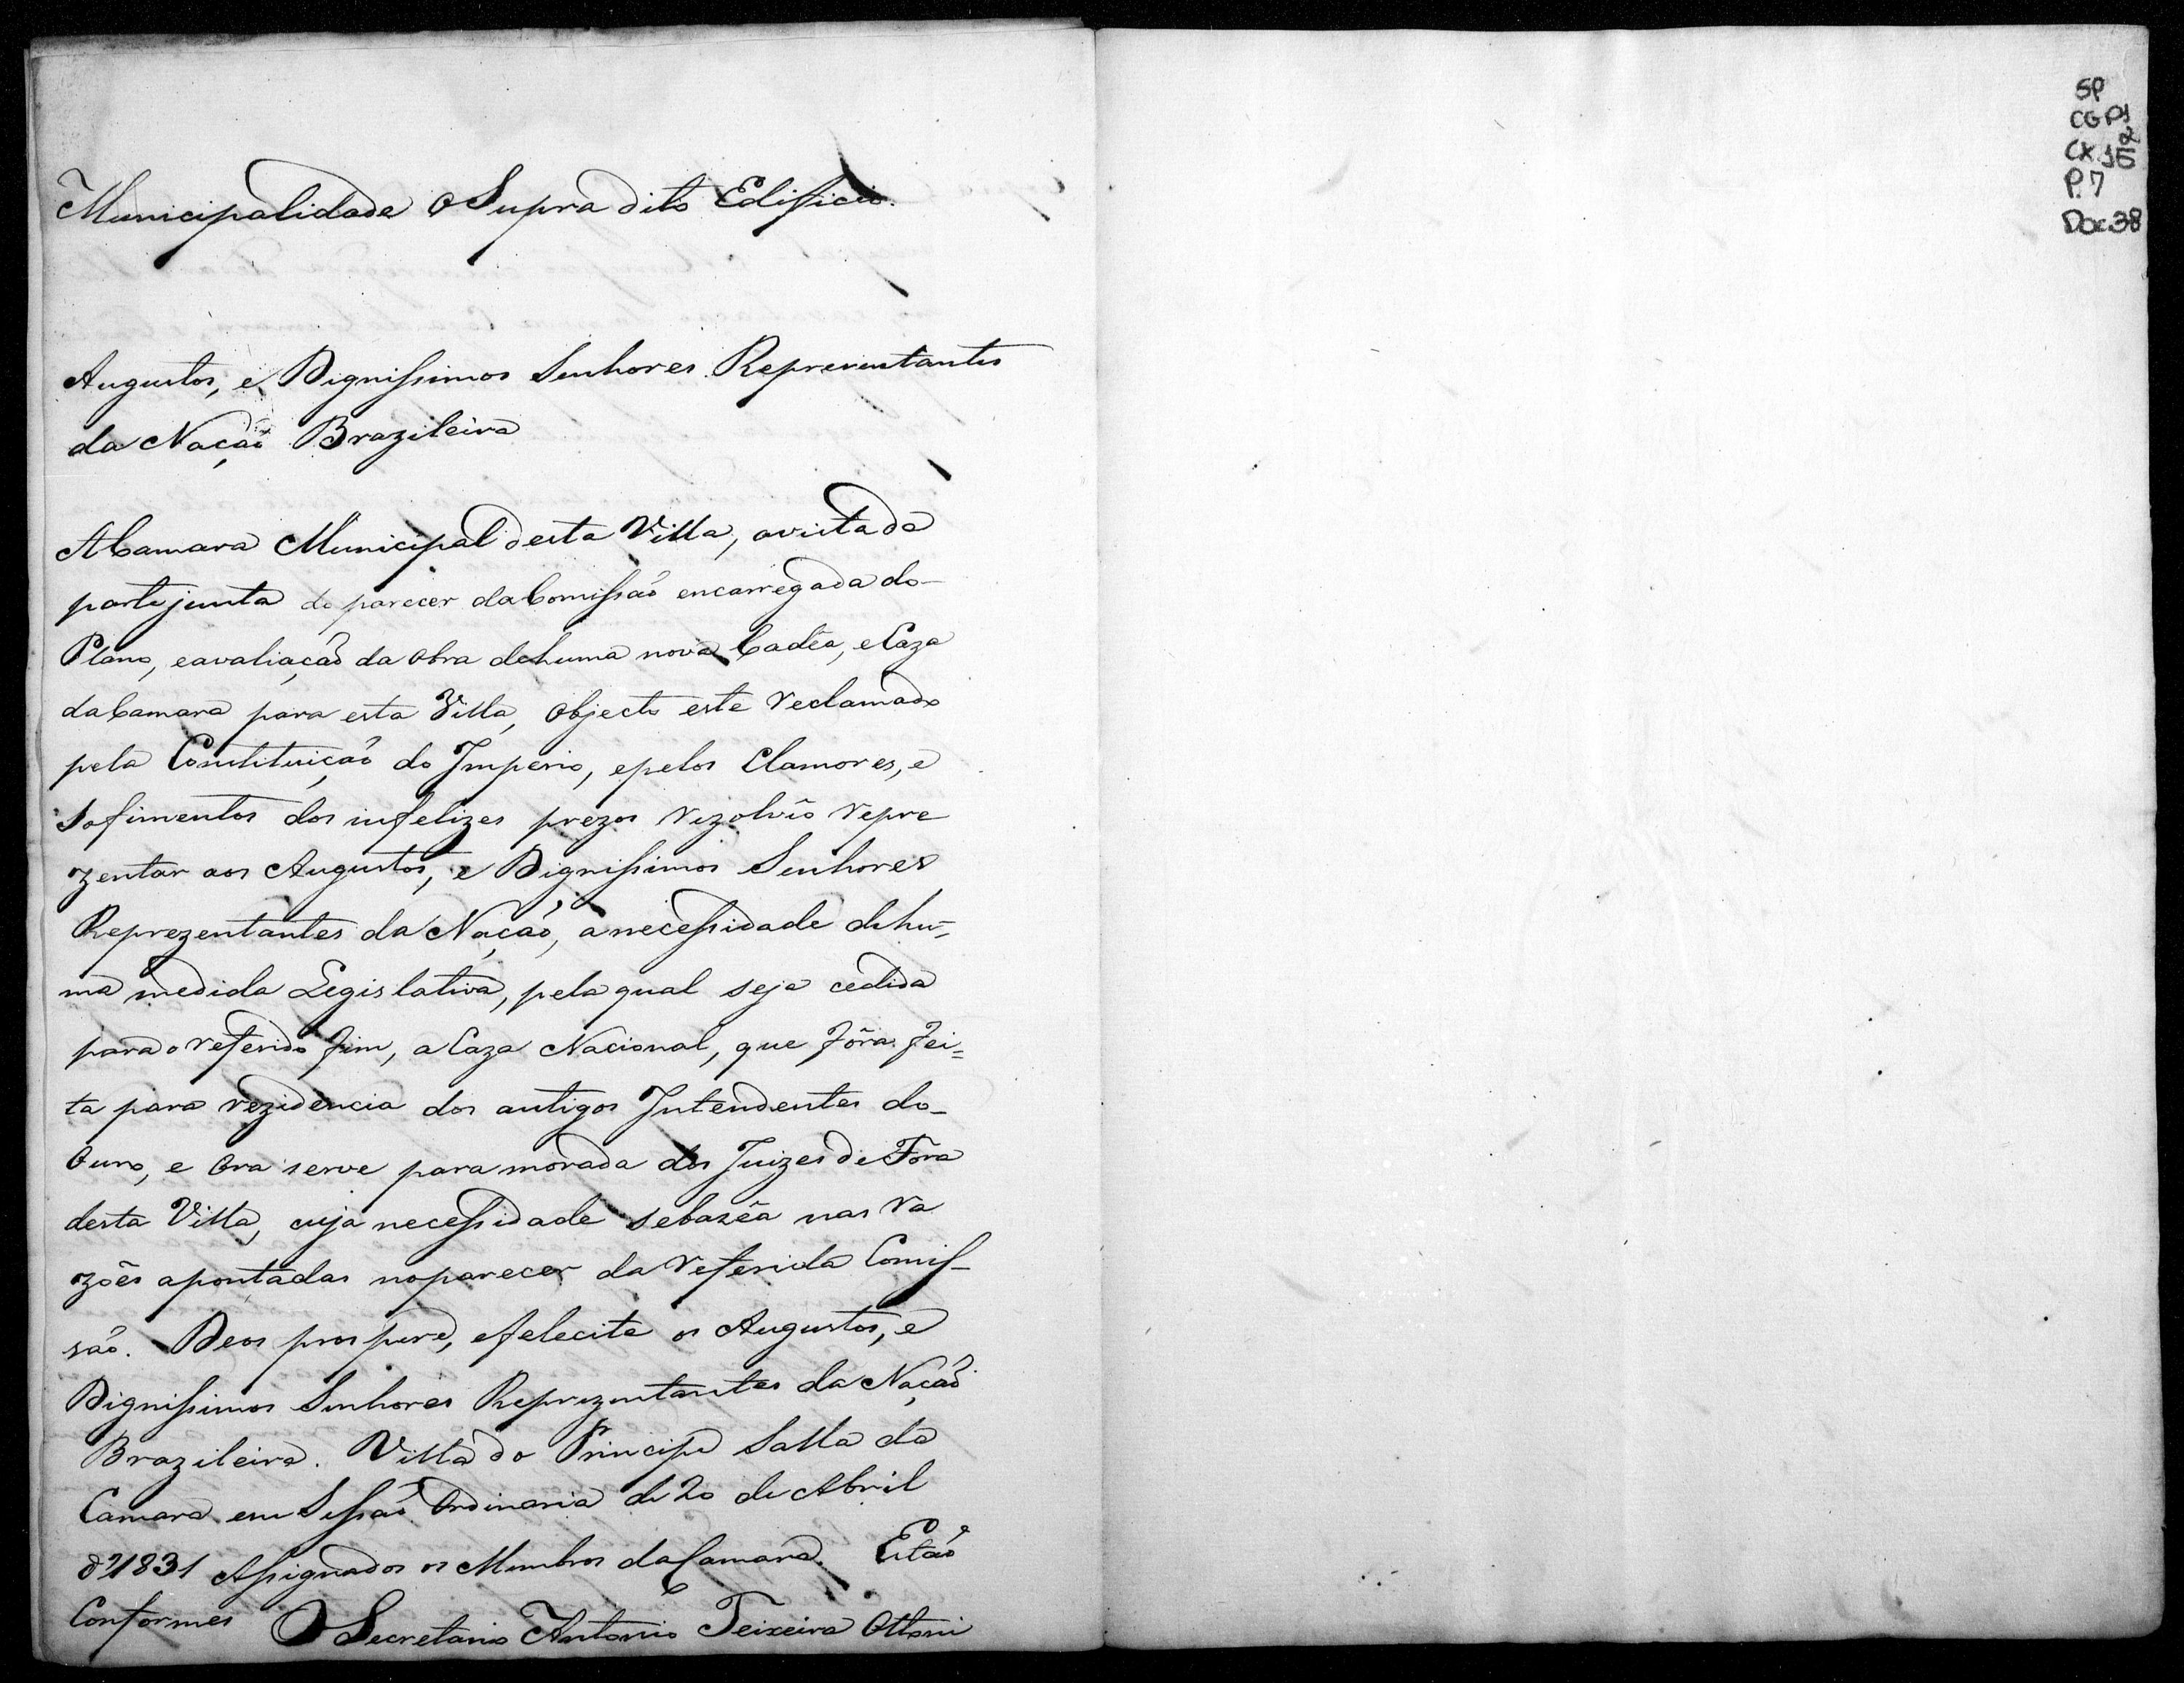 Municipalidade o Supra dito Edificio.
Augustos, e Dignissimos Senhores Reprezentantes
da Nação Brazileira
A Camara Municipal desta Villa, avista da
parte junta do parecer da Comissão encarregada do
Plano, e avaliação da Obra de huma nova Cadêa, e Caza
da Camara para esta Villa, Objecto este reclamado
pela Constituição do Imperio, e pelos Clamores, e
Sofimentos dos infelizes prezos rezolvêo repre
zentar aos Augustos, e Dignissimos Senhores
Reprezentantes da Nação, a necessidade de hu=
ma medida Legislativa, pela qual seja cedida
para o referido fim, a Caza Nacional, que fôra fei=
ta para rezidencia dos antigos Intendentes do
Ouro, e Ora serve para morada dos Juizes de Fora
desta Villa, cuja necessidade se bazêa nas ra
zoês apontadas no parecer da referida Comis-
são. Deos prospere, e felecite os Augustos, e
Dignissimos Senhores Reprezentantes da Nação
Brazileira. Villa do Principe Salla da
Camara em Sessão Ordinaria de 20 de Abril
de 1831 Assignados os Membros da Camara. Estão
Conformes O Secretario Antonio Teixeira Ottoni
SP
CGP1
CX. 2
P. 7
Doc 38